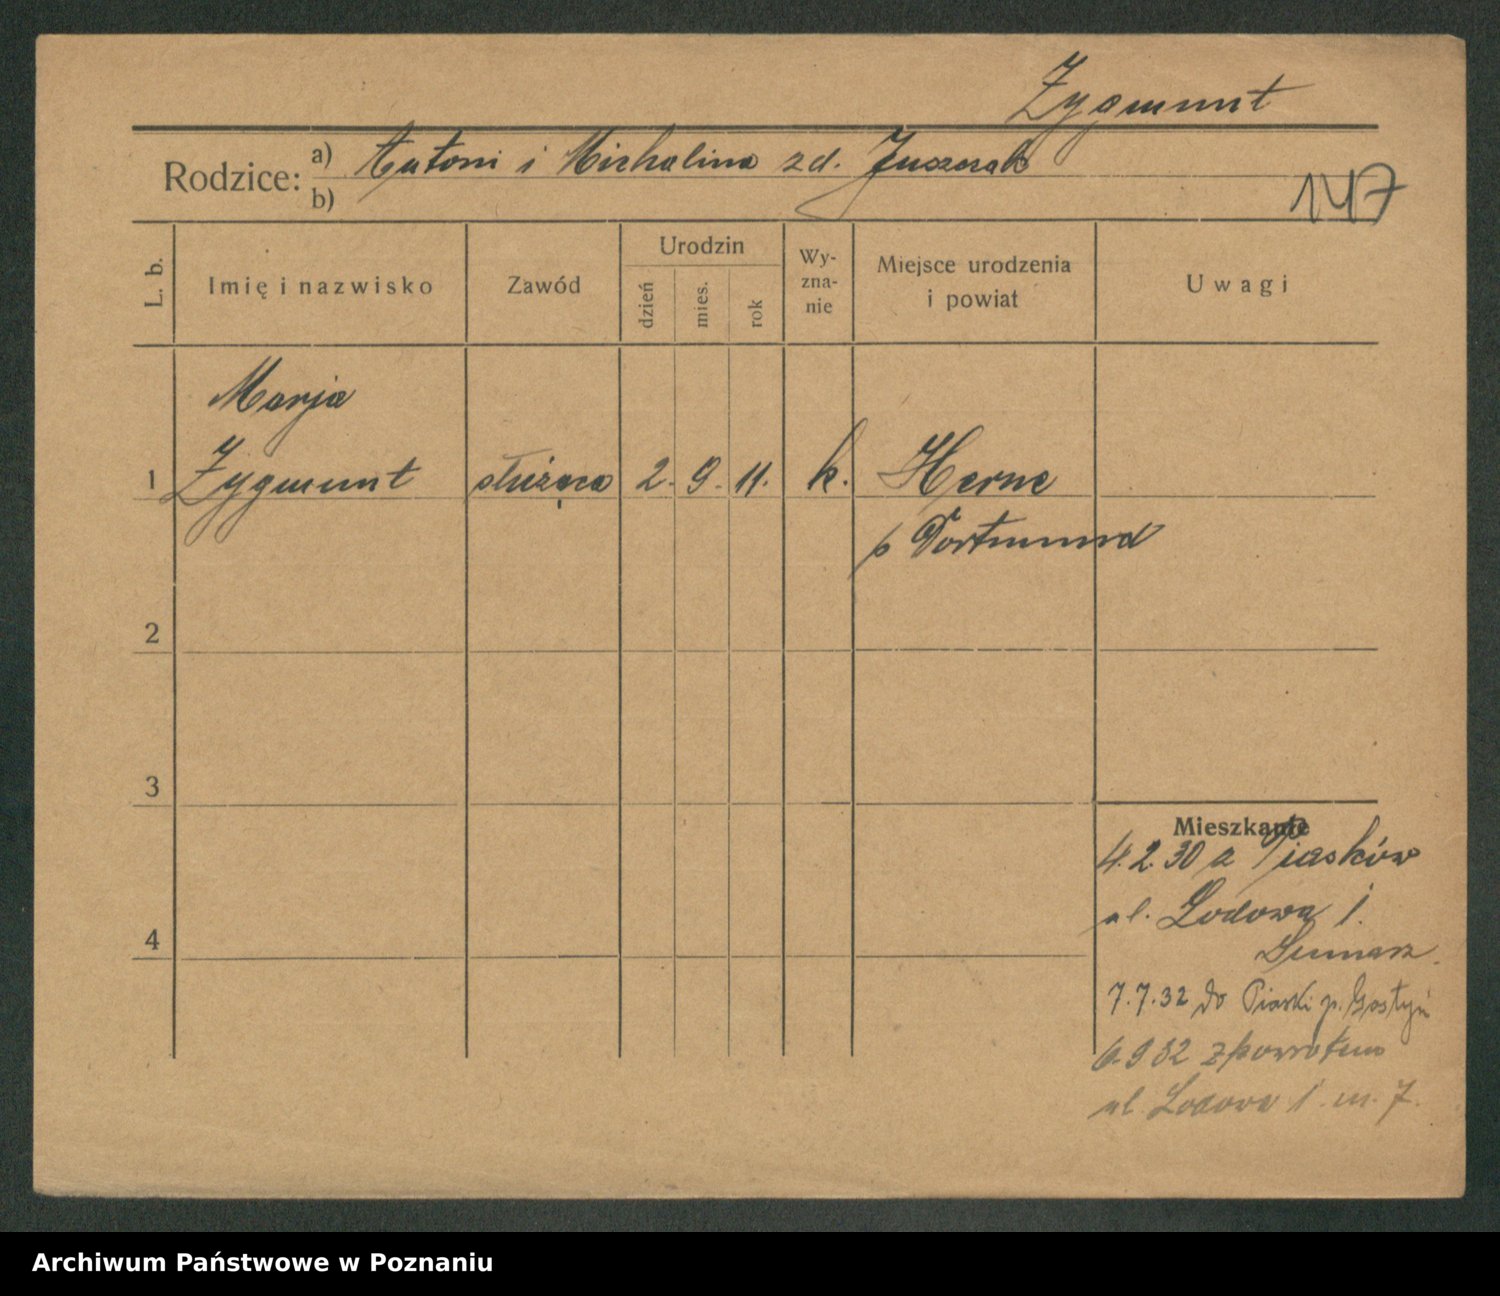 Zygmunt
Rodzice: a) Antoni i Michalina zd. Juszczak
b)
147
L. b. Imię i nazwisko Zawód Urodzin dzień mies. rok Wy-zna-nie Miejsce urodzenia i powiat Uwagi
Marja
1 Zygmunt służąca 2. 9. 11. k. Herne
p Dortmund
2
3
Mieszkanie
4.2.30 z Piasków
ul. Lodowa 1.
4
7.7.32 do Piaski p. Gostyń
6.9 32 zpowrotem
ul. Lodowa 1. m. 7.
Archiwum Państwowe w Poznaniu